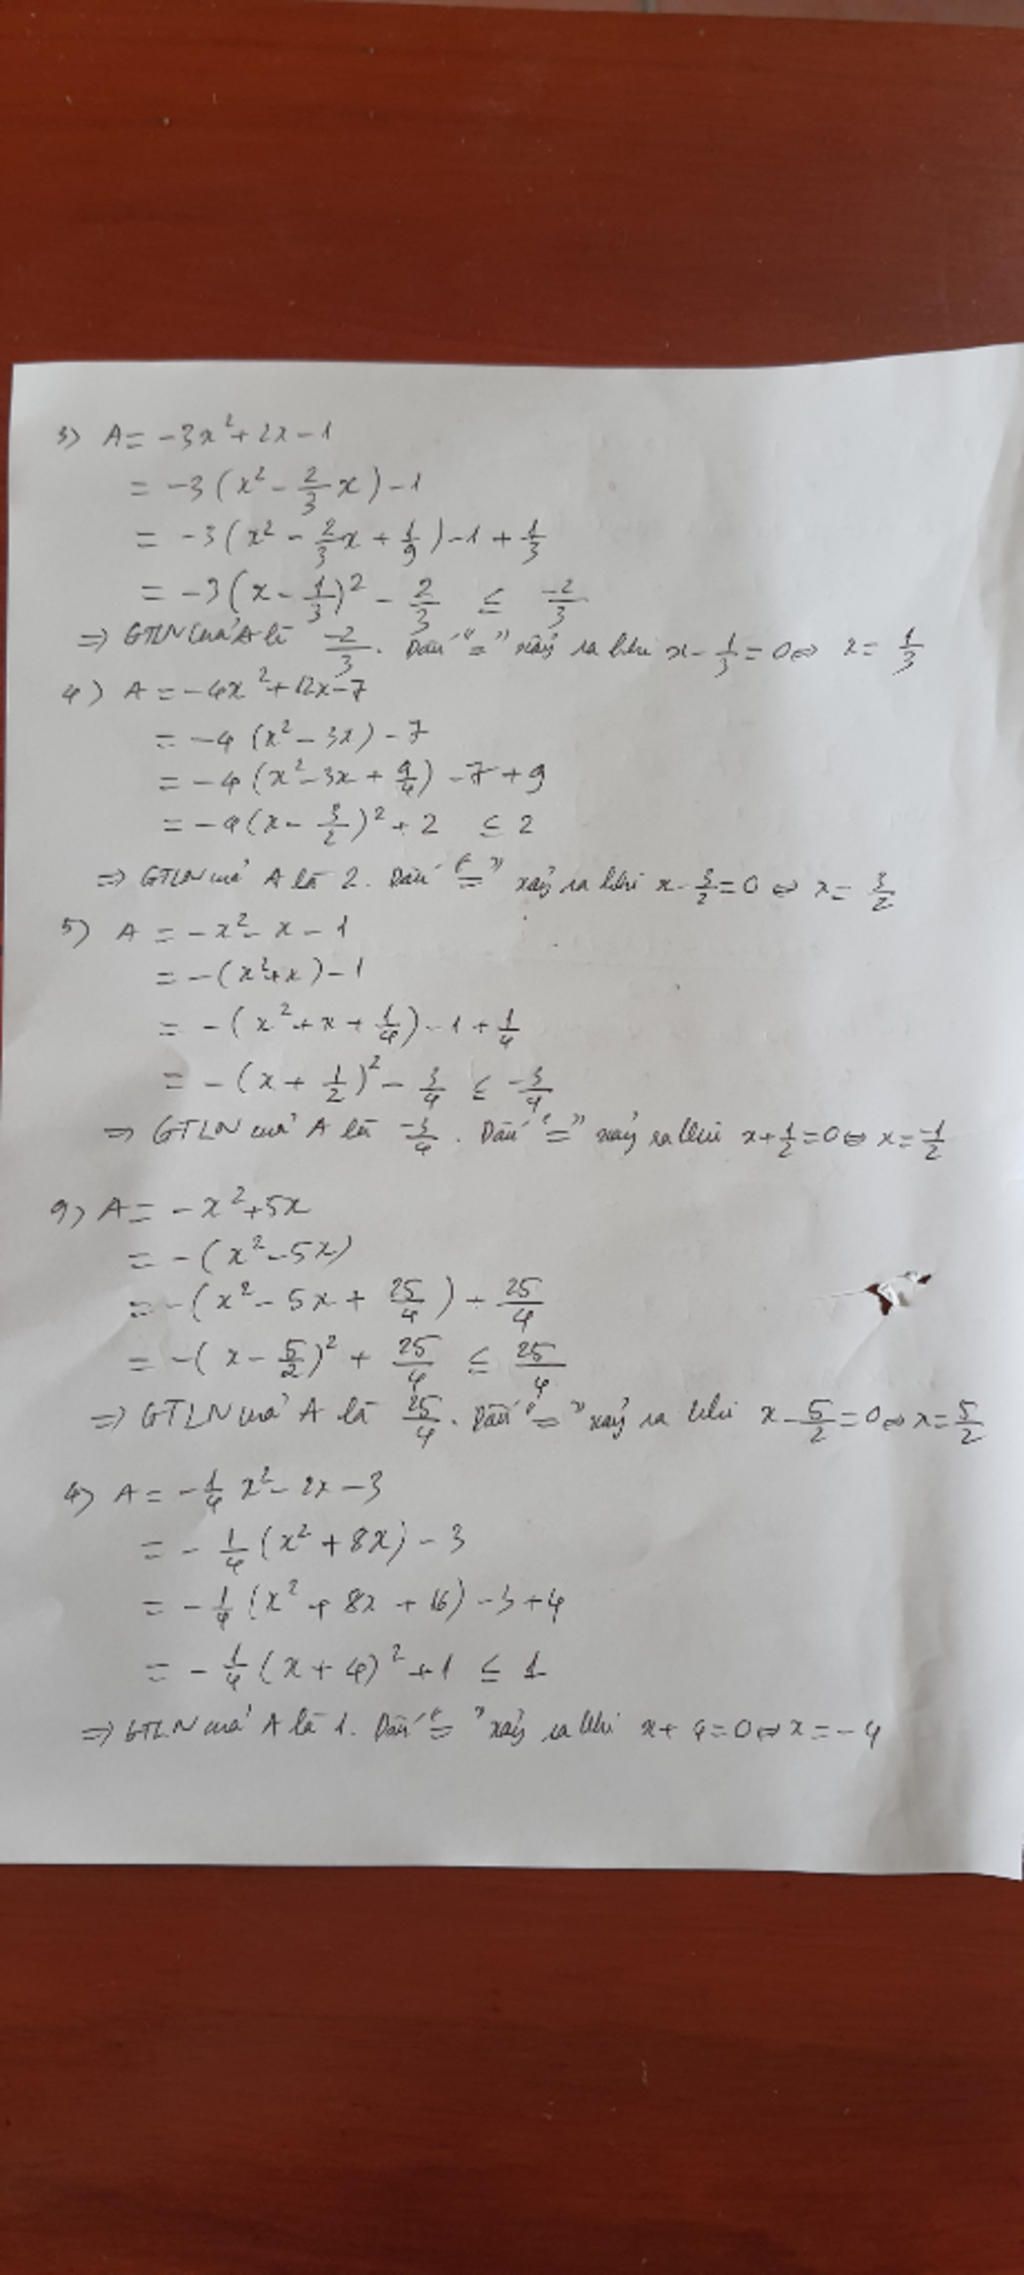 3) A = -3x² + 2x - 1
= -3(x² - 2/3 x) - 1
= -3(x² - 2/3 x + 1/9) - 1 + 1/3
= -3(x - 1/3)² - 2/3 ≤ -2/3
⇒ GTLN của A là -2/3. Dấu "=" xảy ra khi x - 1/3 = 0 ⇔ x = 1/3
4) A = -4x² + 12x - 7
= -4(x² - 3x) - 7
= -4(x² - 3x + 9/4) - 7 + 9
= -4(x - 3/2)² + 2 ≤ 2
⇒ GTLN của A là 2. Dấu "=" xảy ra khi x - 3/2 = 0 ⇔ x = 3/2
5) A = -x² - x - 1
= -(x² + x) - 1
= -(x² + x + 1/4) - 1 + 1/4
= -(x + 1/2)² - 3/4 ≤ -3/4
⇒ GTLN của A là -3/4. Dấu "=" xảy ra khi x + 1/2 = 0 ⇔ x = -1/2
9) A = -x² + 5x
= -(x² - 5x)
= -(x² - 5x + 25/4) + 25/4
= -(x - 5/2)² + 25/4 ≤ 25/4
⇒ GTLN của A là 25/4. Dấu "=" xảy ra khi x - 5/2 = 0 ⇔ x = 5/2
4) A = -1/4 x² - 2x - 3
= -1/4 (x² + 8x) - 3
= -1/4 (x² + 8x + 16) - 3 + 4
= -1/4 (x + 4)² + 1 ≤ 1
⇒ GTLN của A là 1. Dấu "=" xảy ra khi x + 4 = 0 ⇔ x = -4